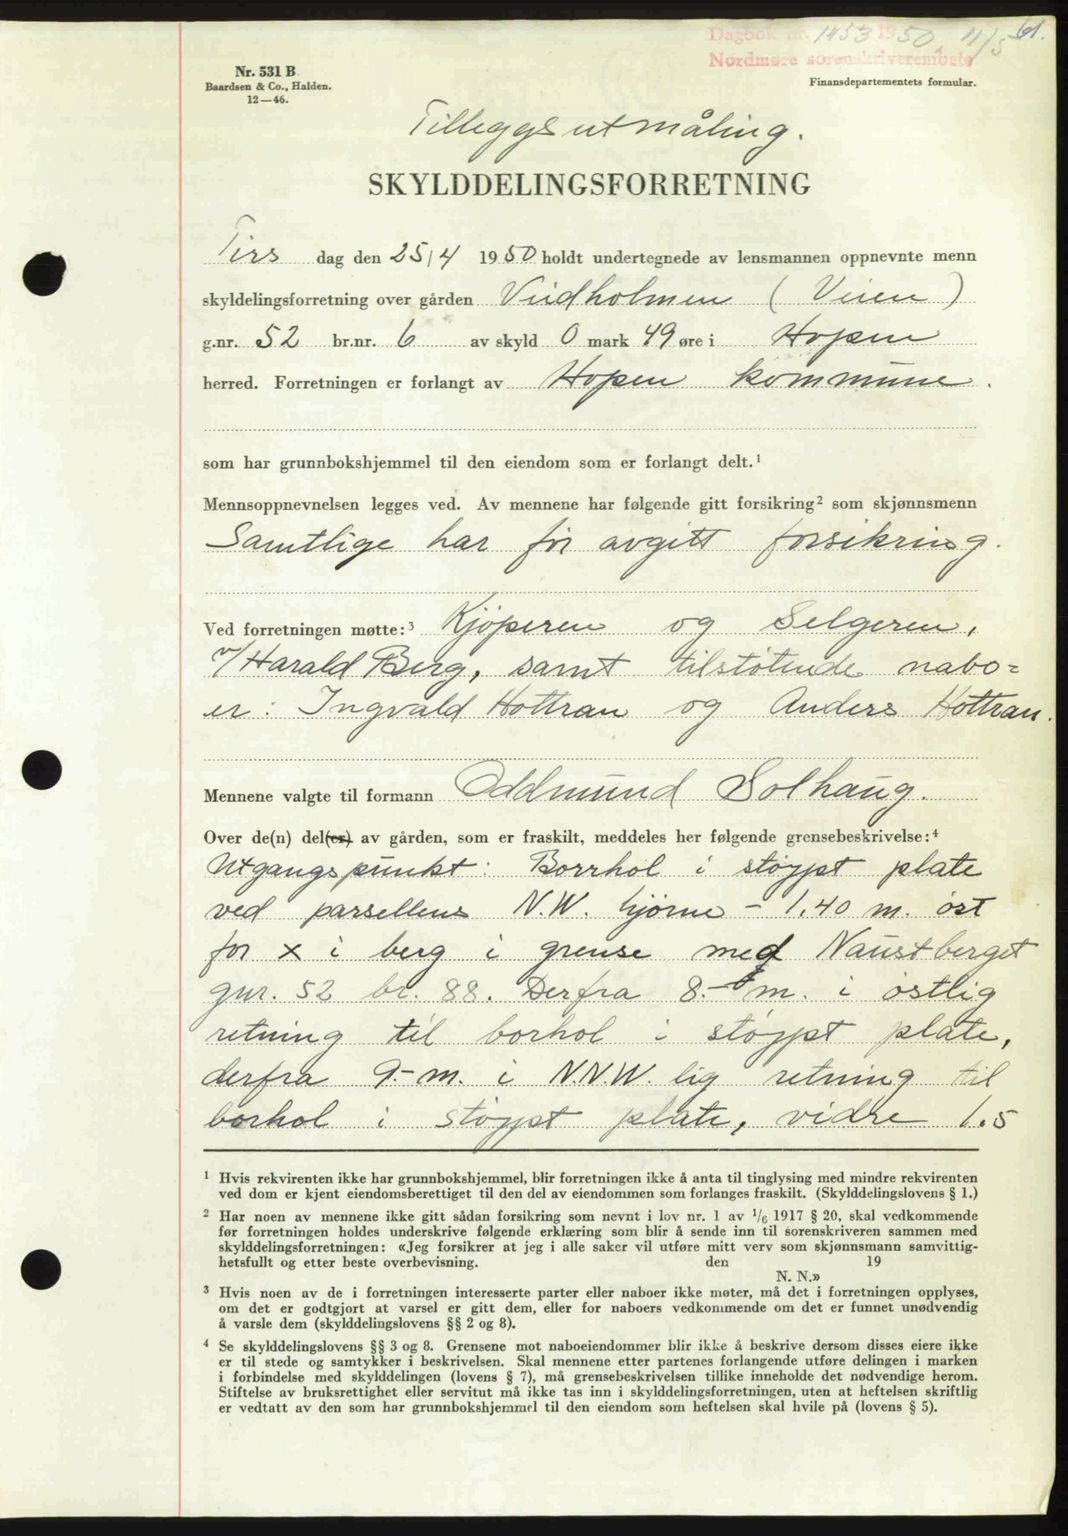 Dagbok nr. 1453 1950, 11/5 61.
Nordmøre sorenskriverembete
Nr. 531 B
Baardsen & Co., Halden.
12—46.
Finansdepartementets formular.
Tilleggsutmåling.
SKYLDDELINGSFORRETNING
Tirs dag den 25/4 1950 holdt undertegnede av lensmannen oppnevnte menn
skyldelingsforretning over gården Veidholmen (Veien)
g.nr. 52 br.nr. 6 av skyld 0 mark 49 øre i Hopen
herred. Forretningen er forlangt av Hopen kommune.
som har grunnbokshjemmel til den eiendom som er forlangt delt.¹
Mennsoppnevnelsen legges ved. Av mennene har følgende gitt forsikring² som skjønnsmenn
Samtlige har før avgitt forsikring.
Ved forretningen møtte:³ Kjøperen og Selgeren,
v/Harald Berg, samt tilstøtende nabo=
er: Ingvald Hottran og Anders Hottran.
Mennene valgte til formann Oddmund Solhaug.
Over de(n) del(er) av gården, som er fraskilt, meddeles her følgende grensebeskrivelse:⁴
Utgangspunkt: Borrhol i støypt plate
ved parsellens N.W. hjørne - 1.40 m. øst
for x i berg i grense med Naustberget
gnr. 52 br. 88. Derfra 8.- m. i østlig
retning til borhol i støypt plate,
derfra 9.- m. i N.N.W. lig retning til
borhol i støypt plate, vidre 1.5
¹ Hvis rekvirenten ikke har grunnbokshjemmel, blir forretningen ikke å anta til tinglysing med mindre rekvirenten
ved dom er kjent eiendomsberettiget til den del av eiendommen som forlanges fraskilt. (Skylddelingslovens § 1.)
² Har noen av mennene ikke gitt sådan forsikring som nevnt i lov nr. 1 av 1/6 1917 § 20, skal vedkommende
før forretningen holdes underskrive følgende erklæring som blir å sende inn til sorenskriveren sammen med
skylddelingsforretningen: «Jeg forsikrer at jeg i alle saker vil utføre mitt verv som skjønnsmann samvittig-
hetsfullt og etter beste overbevisning. den 19
N. N.»
³ Hvis noen av de i forretningen interesserte parter eller naboer ikke møter, må det i forretningen opplyses,
om det er godtgjort at varsel er gitt dem, eller for naboers vedkommende om det er funnet unødvendig
å varsle dem (skylddelingslovens §§ 2 og 8).
⁴ Se skylddelingslovens §§ 3 og 8. Grensene mot naboeiendommer blir ikke å beskrive dersom disses eiere ikke
er til stede og samtykker i beskrivelsen. Skal mennene etter partenes forlangende utføre delingen i marken
i forbindelse med skylddelingen (lovens § 7), må grensebeskrivelsen tillike inneholde det nødvendige herom.
Stiftelse av bruksrettighet eller servitut må ikke tas inn i skylddelingsforretningen, uten at heftelsen skriftlig
er vedtatt av den som har grunnbokshjemmel til den eiendom som heftelsen skal hvile på (lovens § 5).